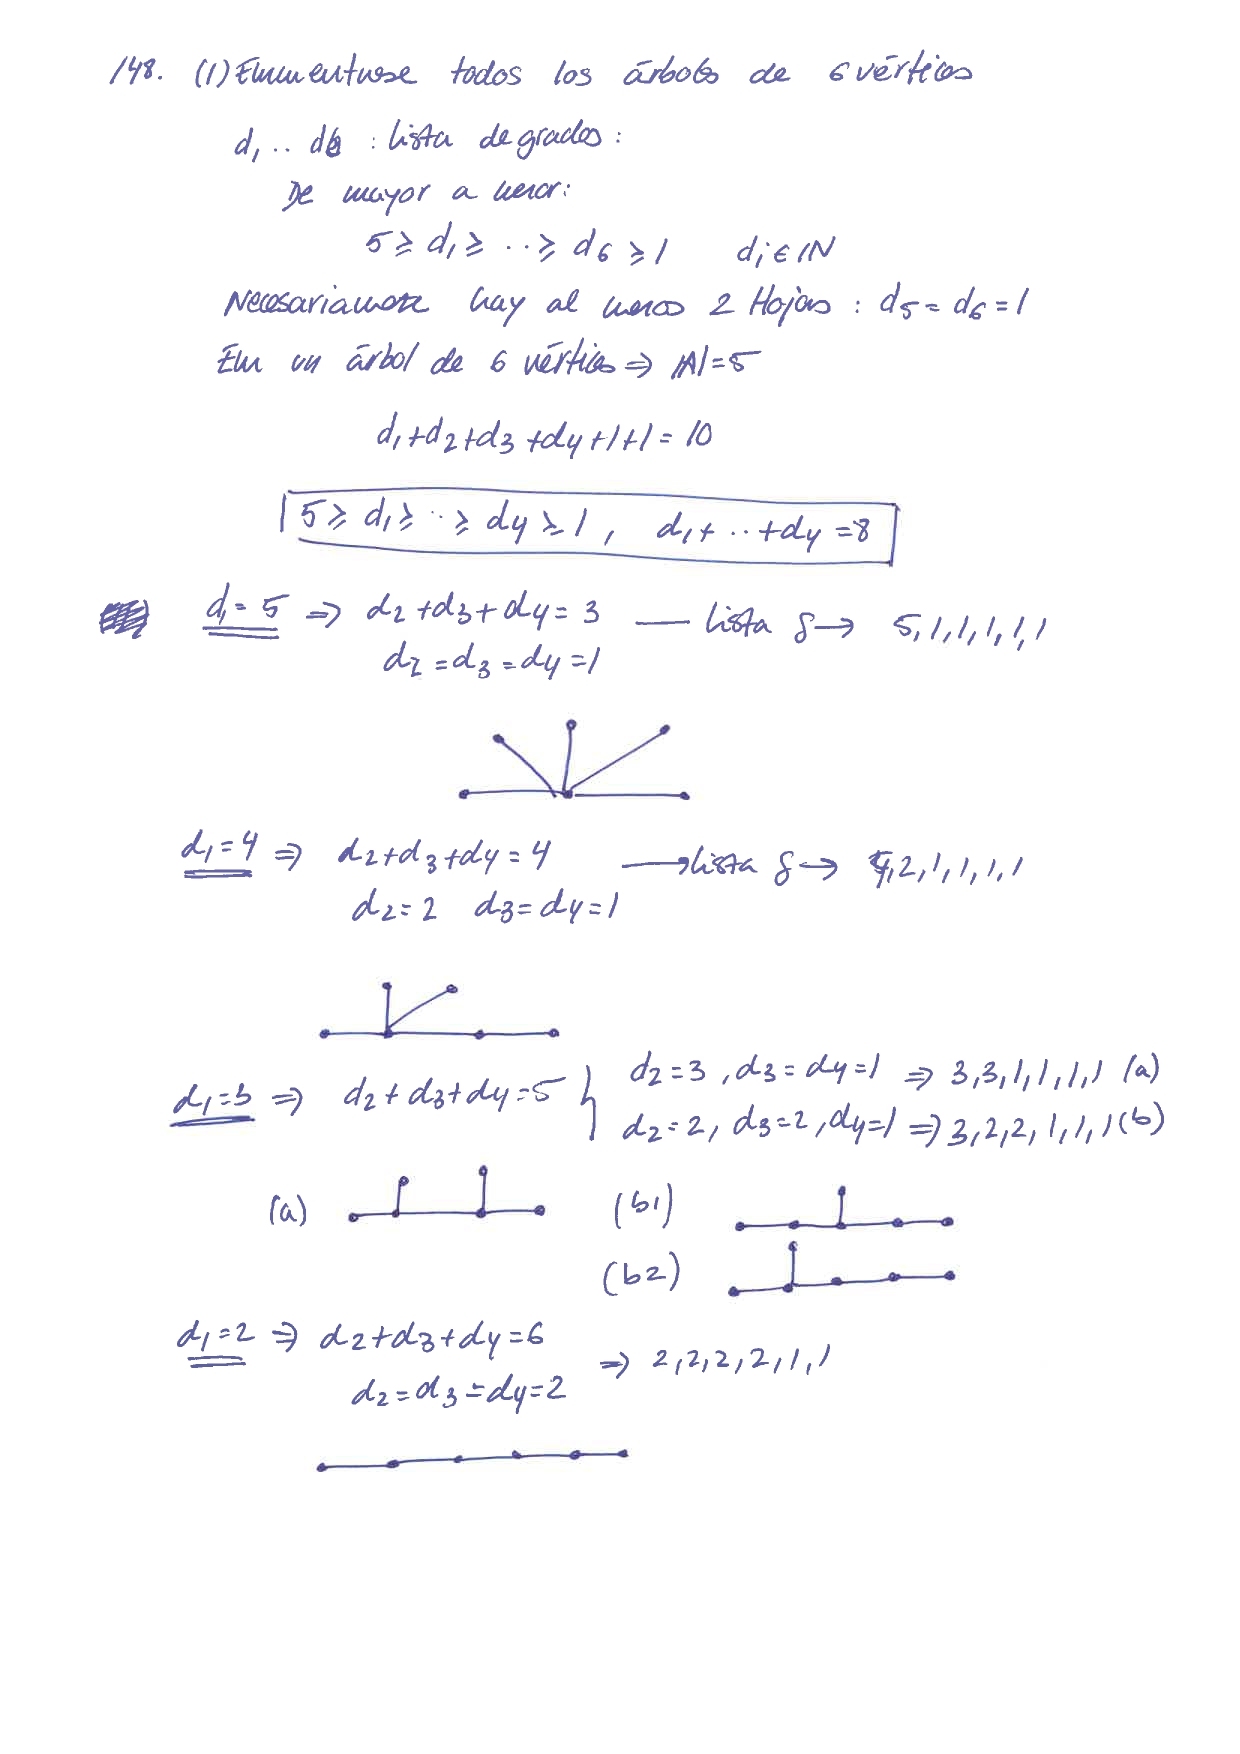 148. (1) Enumentuese todos los árboles de 6 vértices
d₁ .. d₆ : lista de grados :
De mayor a menor:
5 ≥ d₁ ≥ .. ≥ d₆ ≥ 1 dᵢ ∈ ℕ
Necesariamente hay al menos 2 Hojas : d₅ = d₆ = 1
En un árbol de 6 vértices ⇒ |A| = 5
d₁ + d₂ + d₃ + d₄ + 1 + 1 = 10
5 ≥ d₁ ≥ .. ≥ d₄ ≥ 1 , d₁ + .. + d₄ = 8
d₁ = 5 ⇒ d₂ + d₃ + d₄ = 3 — lista δ → 5, 1, 1, 1, 1, 1
d₂ = d₃ = d₄ = 1
d₁ = 4 ⇒ d₂ + d₃ + d₄ = 4 → lista δ → 4, 2, 1, 1, 1, 1
d₂ = 2 d₃ = d₄ = 1
d₁ = 3 ⇒ d₂ + d₃ + d₄ = 5 { d₂ = 3 , d₃ = d₄ = 1 ⇒ 3, 3, 1, 1, 1, 1 (a)
d₂ = 2, d₃ = 2, d₄ = 1 ⇒ 3, 2, 2, 1, 1, 1 (b)
(a) (b1)
(b2)
d₁ = 2 ⇒ d₂ + d₃ + d₄ = 6
⇒ 2, 2, 2, 2, 1, 1
d₂ = d₃ = d₄ = 2